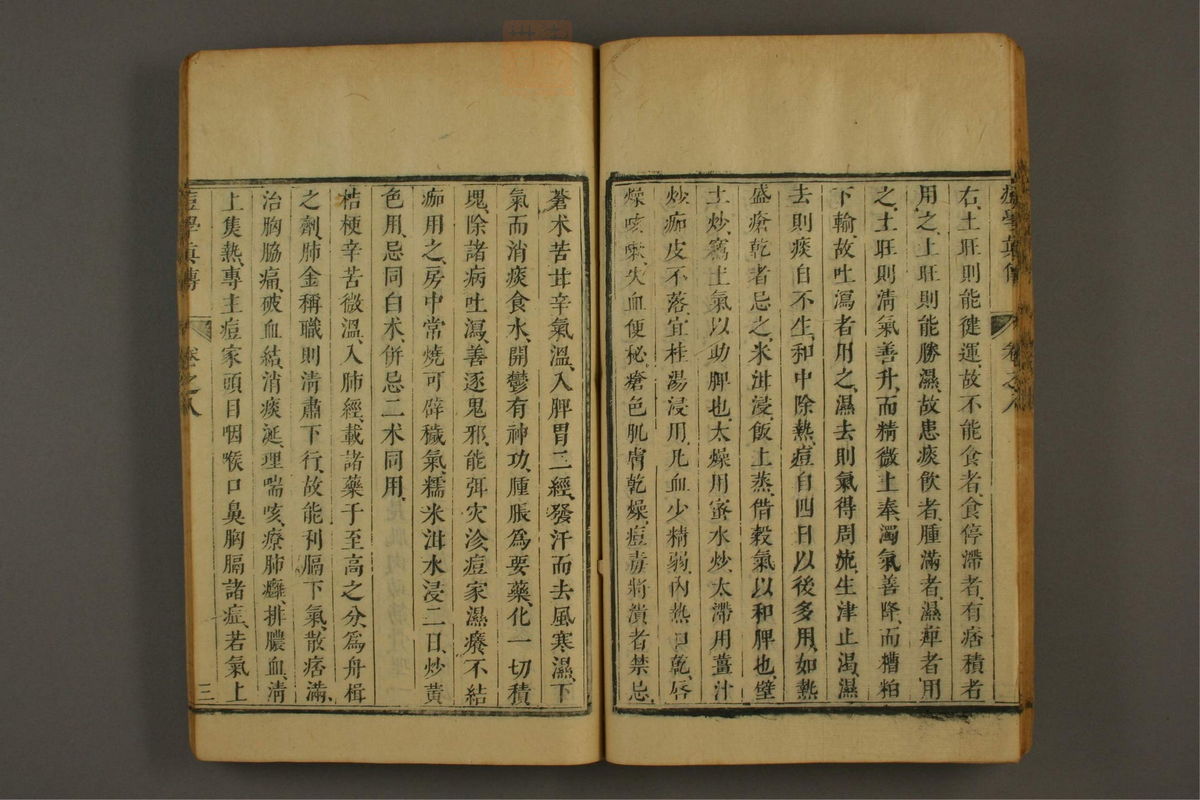 右土旺則能健運故不能食者食停滯者有痞積者
用之土旺則能勝濕故患痰飲者腫滿者濕痺者用
之土旺則清氣善升而精微上奉濁氣善降而糟粕
下輸故吐瀉者用之濕去則氣得周流生津止渴濕
去則痰自不生和中除熱痘自四日以後多用如熱
盛瘡乾者忌之米泔浸飯上蒸借穀氣以和脾也壁
土炒竊土氣以助脾也太燥用蜜水炒太滯用薑汁
炒痂皮不落宜桂湯浸用凡血少精弱內熱口乾唇
燥咳嗽失血便秘瘡色肌膚乾燥痘毒將潰者禁忌
蒼朮苦甘辛氣溫入脾胃二經發汗而去風寒濕下
氣而消痰食水開鬱有神功腫脹為要藥化一切積
塊除諸病吐瀉善逐鬼邪能弭災沴痘家濕癢不結
痂用之房中常燒可辟穢氣糯米泔水浸二日炒黃
色用忌同白朮併忌二朮同用
桔梗辛苦微溫入肺經載諸藥于至高之分為舟楫
之劑肺金稱職則清肅下行故能利膈下氣散痞滿
治胸脇痛破血結消痰涎理喘咳療肺癰排膿血清
上集熱專主痘家頭目咽喉口鼻胸膈諸症若氣上
痘學真傳 卷之八 三